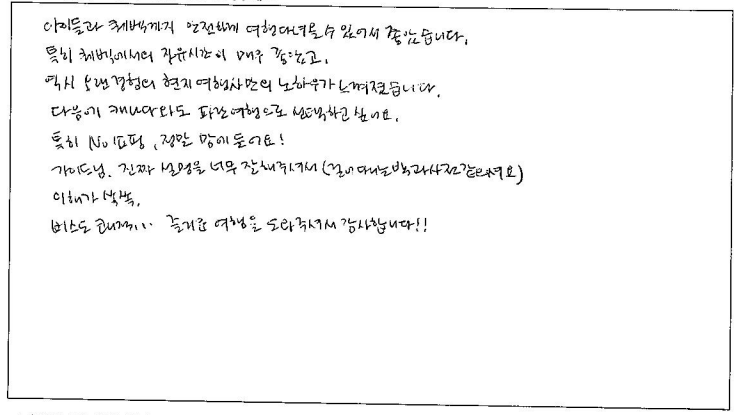 아이들과 퀘벡까지 안전하게 여행다녀올수 있어서 좋았습니다.
특히 퀘벡에서의 자유시간이 매우 좋았고,
역시 오랜경험의 현지여행사만의 노하우가 느껴졌습니다.
다음에 캐나다와도 파란여행으로 선택하고 싶어요.
특히 No쇼핑, 정말 맘에 들어요!
가이드님. 진짜 설명을 너무 잘해주셔서 (걸어다니는 백과사전같으셔요)
이해가 쏙쏙.
버스도 쾌적... 즐거운 여행을 도와주셔서 감사합니다!!